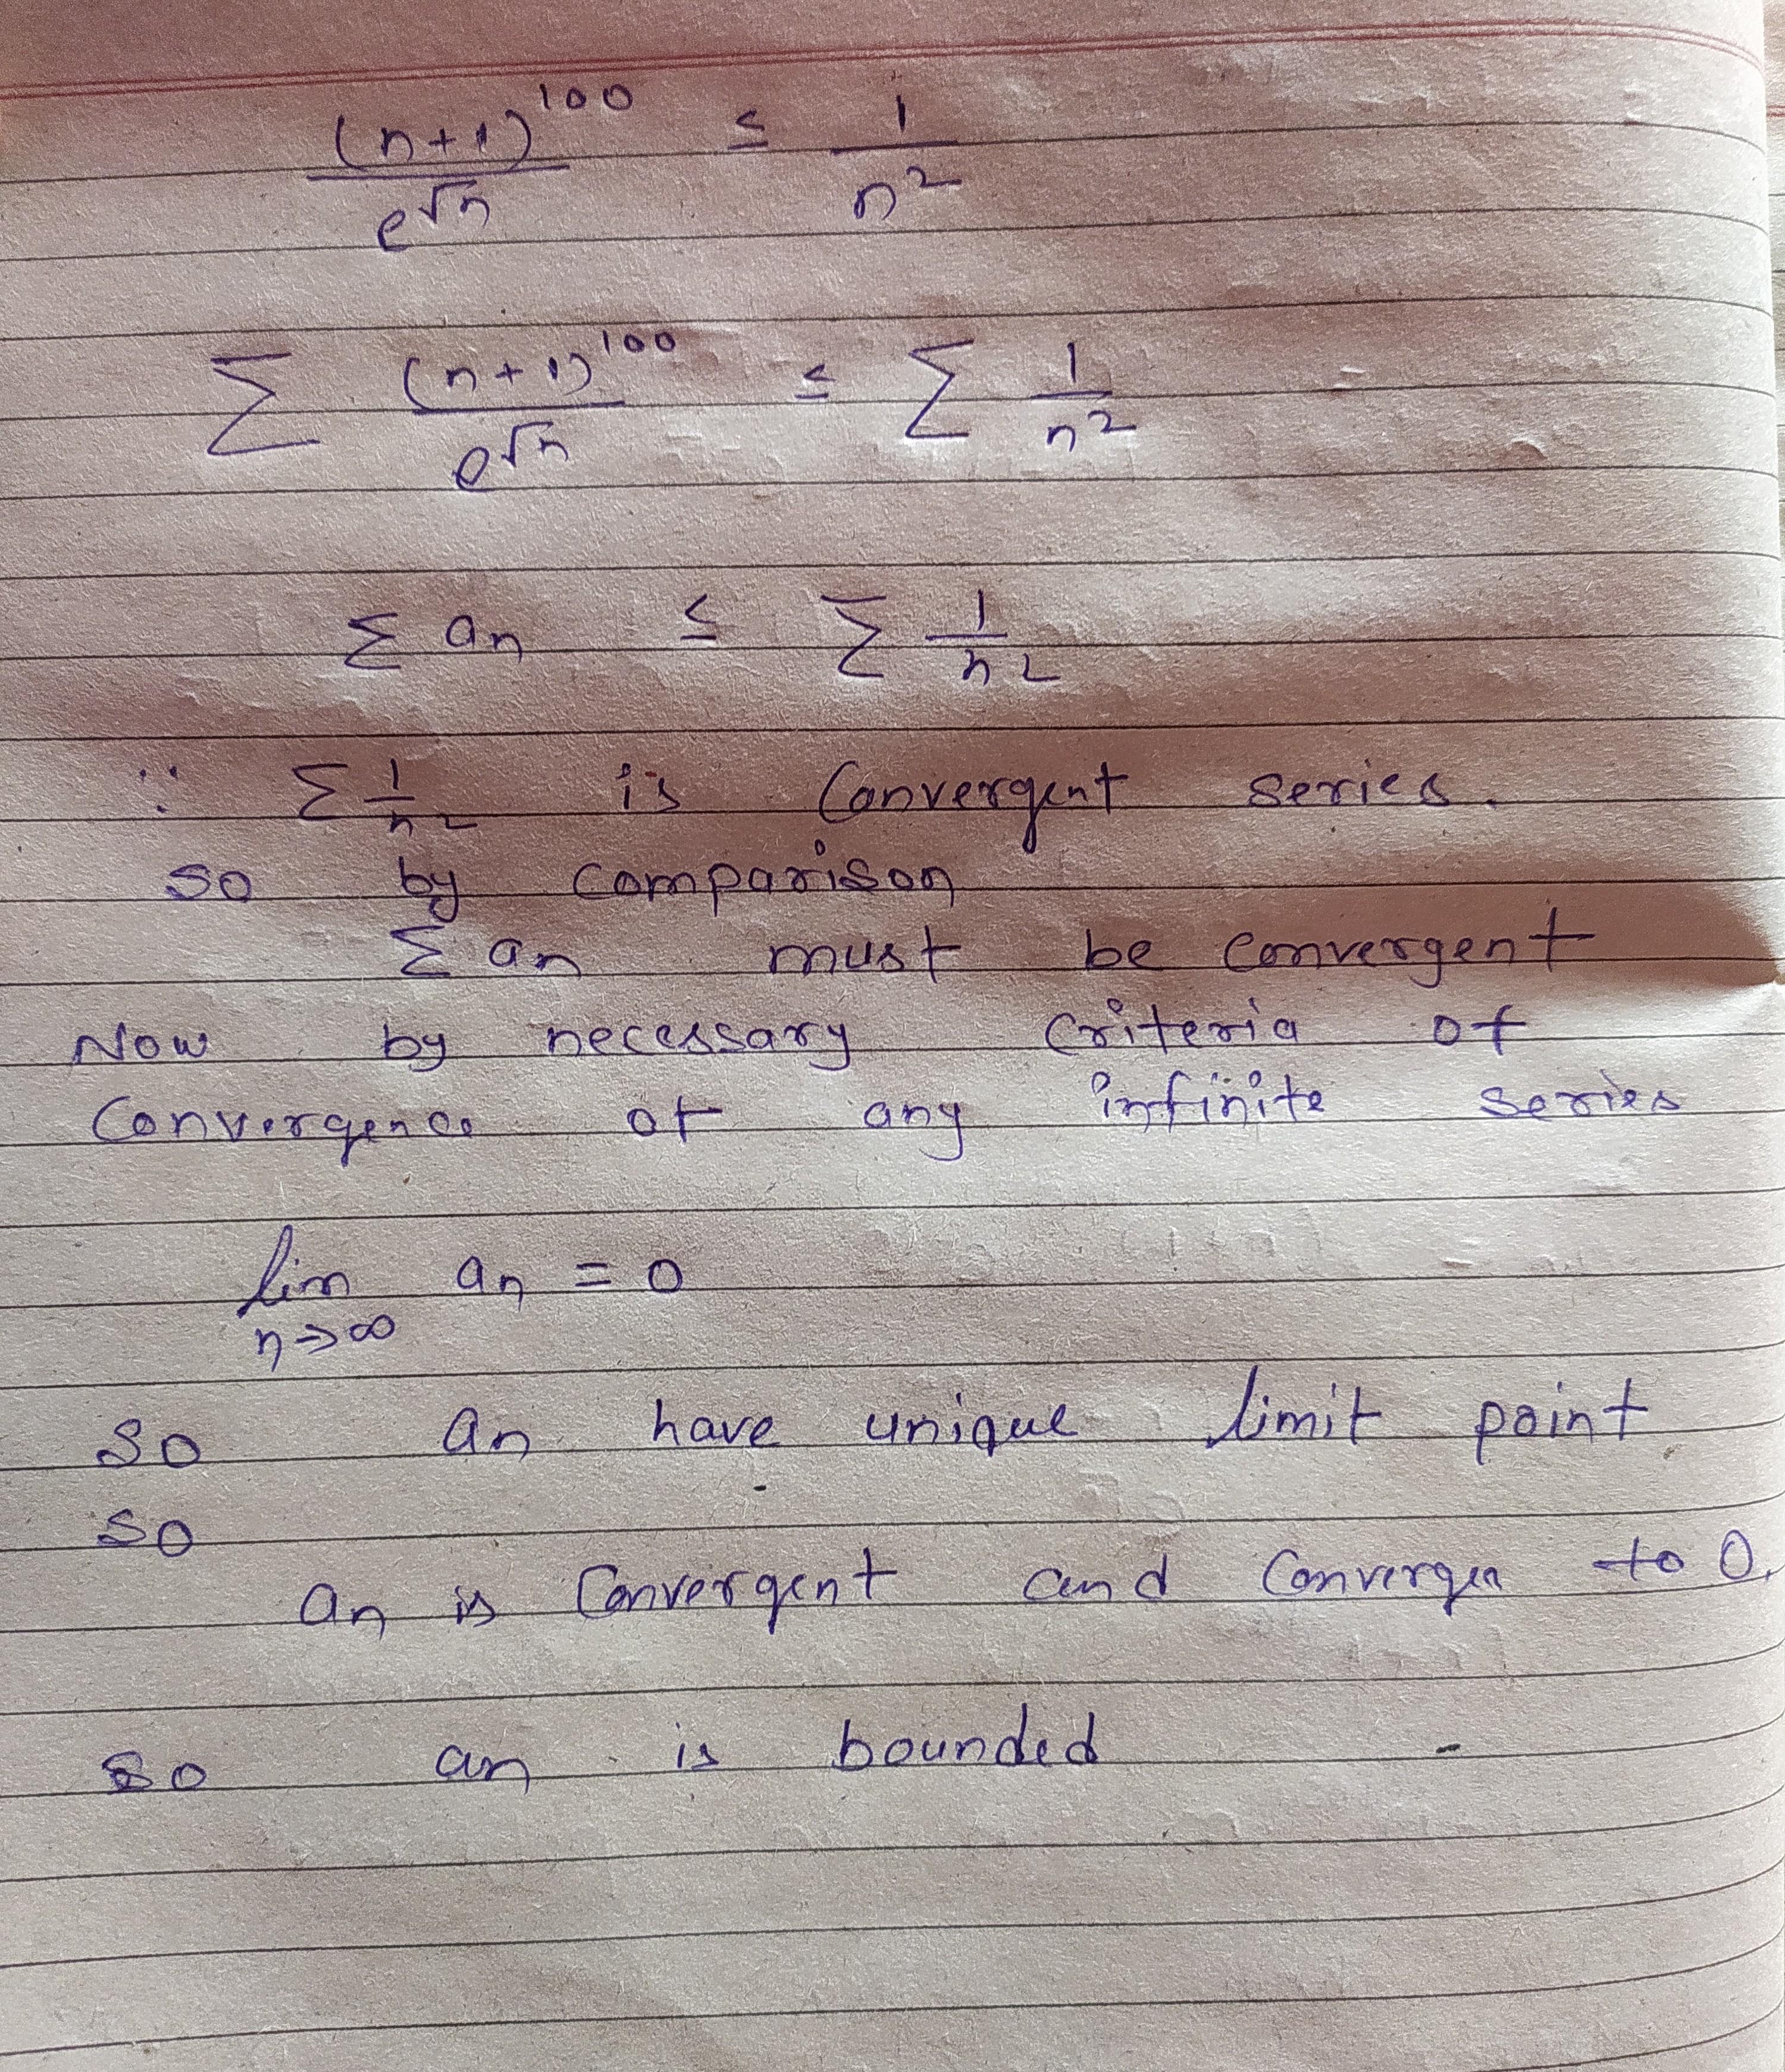 (n+1)^100 / e^√n ≤ 1/n^2
Σ (n+1)^100 / e^√n ≤ Σ 1/n^2
Σ an ≤ Σ 1/n^2
∵ Σ 1/n^2 is Convergent series.
so by comparison
Σ an must be convergent
Now by necessary criteria of
Convergence of any infinite series
lim n→∞ an = 0
so an have unique limit point
so
an is Convergent and Converges to 0.
so an is bounded